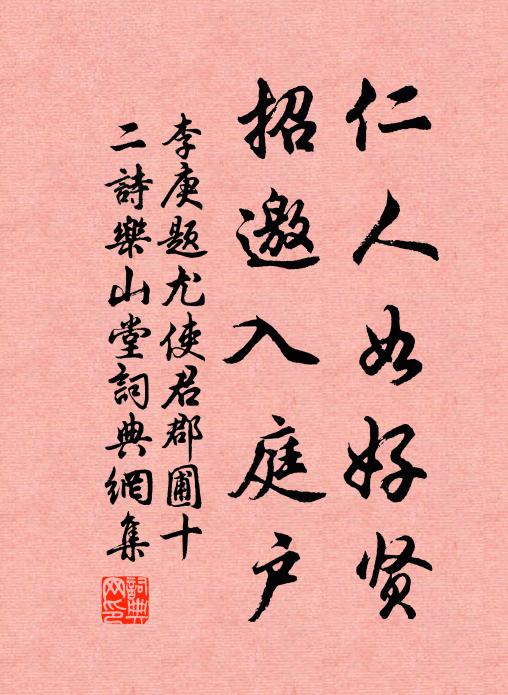 仁人如好贤
招邀入庭户
李庚题尤使君郡圃十
二詩樂山堂詞典網集
詞典网印